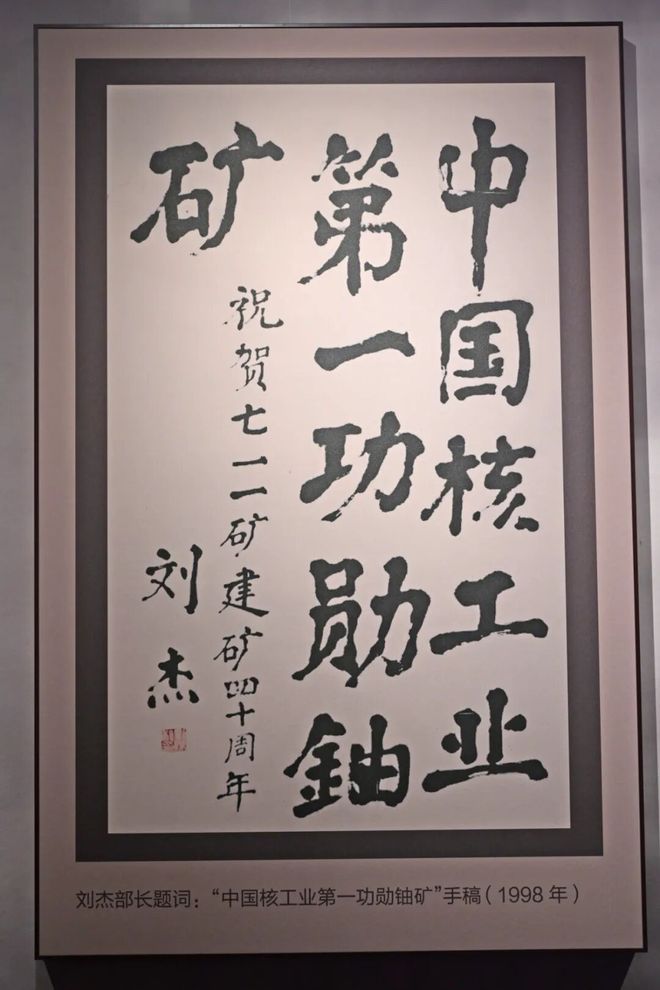 中国核工业
第一功勋铀
矿
祝贺七一一矿建矿四十周年
刘杰
刘杰部长题词：“中国核工业第一功勋铀矿”手稿（1998 年）